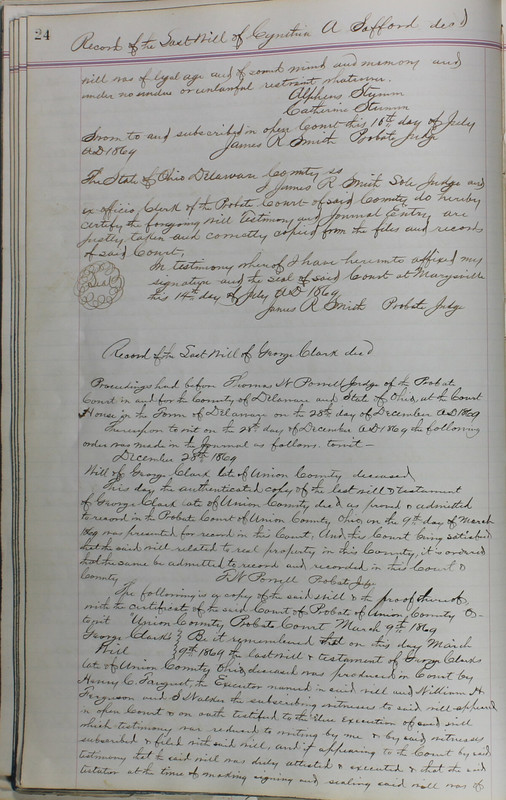 24
Record of the Last Will of Cynthia A Safford decd
will was of legal age and of sound mind and memory and
under no undue or unlawful restraint whatever.
Alpheus
Catherine
Sworn to and subscribed in open Court this 10th day of July
AD 1869 James R Smith Probate Judge
The State of Ohio Delaware County ss
I James R Smith Sole Judge and
ex officio Clerk of the Probate Court of said County do hereby
certify the foregoing will testimony and Journal Entry are
justly taken and correctly copied from the files and records
of said Court,
In testimony whereof I have hereunto affixed my
signature and the seal of said Court at Marysville
this 14th day of July AD 1869
Seal
James R Smith Probate Judge
Record of the Last Will of George Clark decd
Proceedings had before Thomas W Powell Judge of the Probate
Court in and for the County of Delaware and State of Ohio, at the Court
House in the Town of Delaware on the 28th day of December AD 1869
Thereupon to wit on the 28th day of December AD 1869 the following
order was made in the Journal as follows. towit—
December 28th 1869
Will of George Clark late of Union County deceased
This day the authenticated copy of the last will & testament
of George Clark late of Union County decd as proved & admitted
to record in the Probate Court of Union County Ohio, on the 9th day of March
1869 was presented for record in this Court, And this Court being satisfied
that the said will related to real property in this County, it is ordered
that the same be admitted to record and recorded in this Court &
County T.W. Powell Probate Judge
The following is a copy of the said Will & the proof thereof
with the certificate of the said Court of Probate of Union County O-
towit "Union County Probate Court March 9th 1869
George Clarks } Be it remembered that on this day March
Will } 9th 1869 the last will & testament of George Clarks
late of Union County Ohio, deceased was produced in Court by
Henry C. the Executor named in said will and William H
Ferguson and S Walker the subscribing witnesses to said will appeared
in open Court & on oath testified to the due execution of said will
which testimony was reduced to writing by me & by said witnesses
subscribed & filed with said will, and it appearing to the Court by said
testimony that the said will was duly attested & executed & that the said
testator at the time of making signing and sealing said will was of